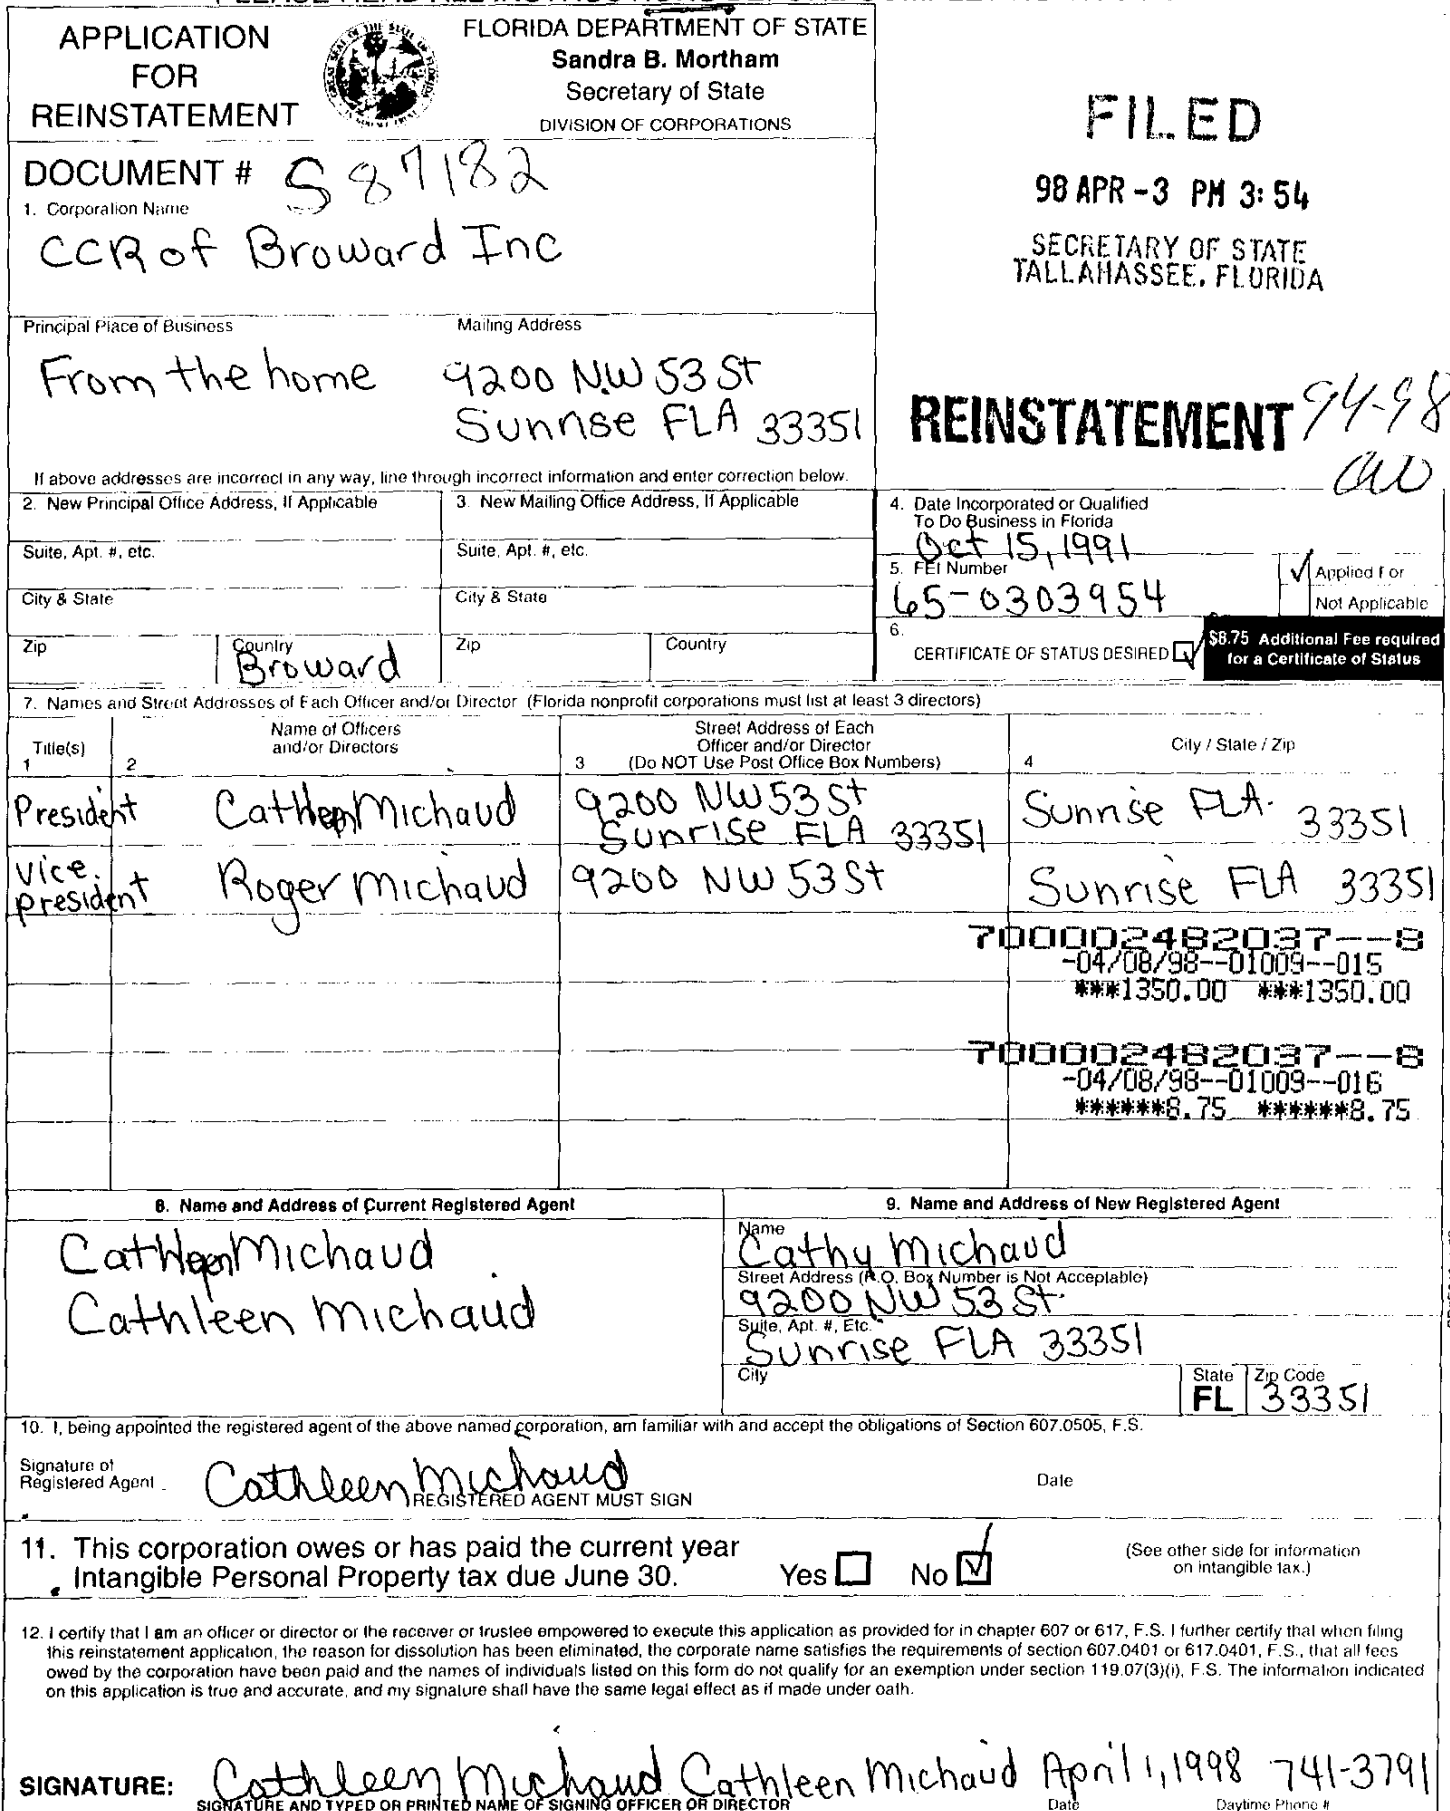 APPLICATION
FOR
REINSTATEMENT
FLORIDA DEPARTMENT OF STATE
Sandra B. Mortham
Secretary of State
DIVISION OF CORPORATIONS
FILED
98 APR -3 PM 3:54
SECRETARY OF STATE
TALLAHASSEE, FLORIDA
DOCUMENT # S87182
1. Corporation Name
CCR of Broward Inc
Principal Place of Business
From the home
Mailing Address
9200 N.W 53 St
Sunrise FLA 33351
REINSTATEMENT 94-98
If above addresses are incorrect in any way, line through incorrect information and enter correction below.
2. New Principal Office Address, If Applicable
Suite, Apt. #, etc.
City & State
Zip
Country
Broward
3. New Mailing Office Address, If Applicable
Suite, Apt. #, etc.
City & State
Zip
Country
4. Date Incorporated or Qualified
To Do Business in Florida
Oct 15, 1991
5. FEI Number
65-0303954
✓ Applied For
Not Applicable
6.
CERTIFICATE OF STATUS DESIRED ✓
$8.75 Additional Fee required
for a Certificate of Status
7. Names and Street Addresses of Each Officer and/or Director (Florida nonprofit corporations must list at least 3 directors)
Title(s)
1
2
Name of Officers
and/or Directors
Street Address of Each
Officer and/or Director
3 (Do NOT Use Post Office Box Numbers)
City / State / Zip
4
President Cathleen Michaud 9200 NW 53 St Sunrise FLA. 33351
Sunrise FLA 33351
vice.
president Roger Michaud 9200 NW 53 St Sunrise FLA 33351
700002482037--8
-04/08/98--01009--015
***1350.00 ***1350.00
700002482037--8
-04/08/98--01009--016
******8.75 ******8.75
8. Name and Address of Current Registered Agent
Cathleen Michaud
Cathleen Michaud
9. Name and Address of New Registered Agent
Name
Cathy Michaud
Street Address (P.O. Box Number is Not Acceptable)
9200 NW 53 St.
Suite, Apt. #, Etc.
Sunrise FLA 33351
City
State
FL
Zip Code
33351
10. I, being appointed the registered agent of the above named corporation, am familiar with and accept the obligations of Section 607.0505, F.S.
Signature of
Registered Agent
Cathleen Michaud
REGISTERED AGENT MUST SIGN
Date
11. This corporation owes or has paid the current year
Intangible Personal Property tax due June 30.
Yes ☐ No ☑
(See other side for information
on intangible tax.)
12. I certify that I am an officer or director or the receiver or trustee empowered to execute this application as provided for in chapter 607 or 617, F.S. I further certify that when filing
this reinstatement application, the reason for dissolution has been eliminated, the corporate name satisfies the requirements of section 607.0401 or 617.0401, F.S., that all fees
owed by the corporation have been paid and the names of individuals listed on this form do not qualify for an exemption under section 119.07(3)(i), F.S. The information indicated
on this application is true and accurate, and my signature shall have the same legal effect as if made under oath.
SIGNATURE: Cathleen Michaud Cathleen Michaud April 1, 1998 741-3791
SIGNATURE AND TYPED OR PRINTED NAME OF SIGNING OFFICER OR DIRECTOR
Date
Daytime Phone #